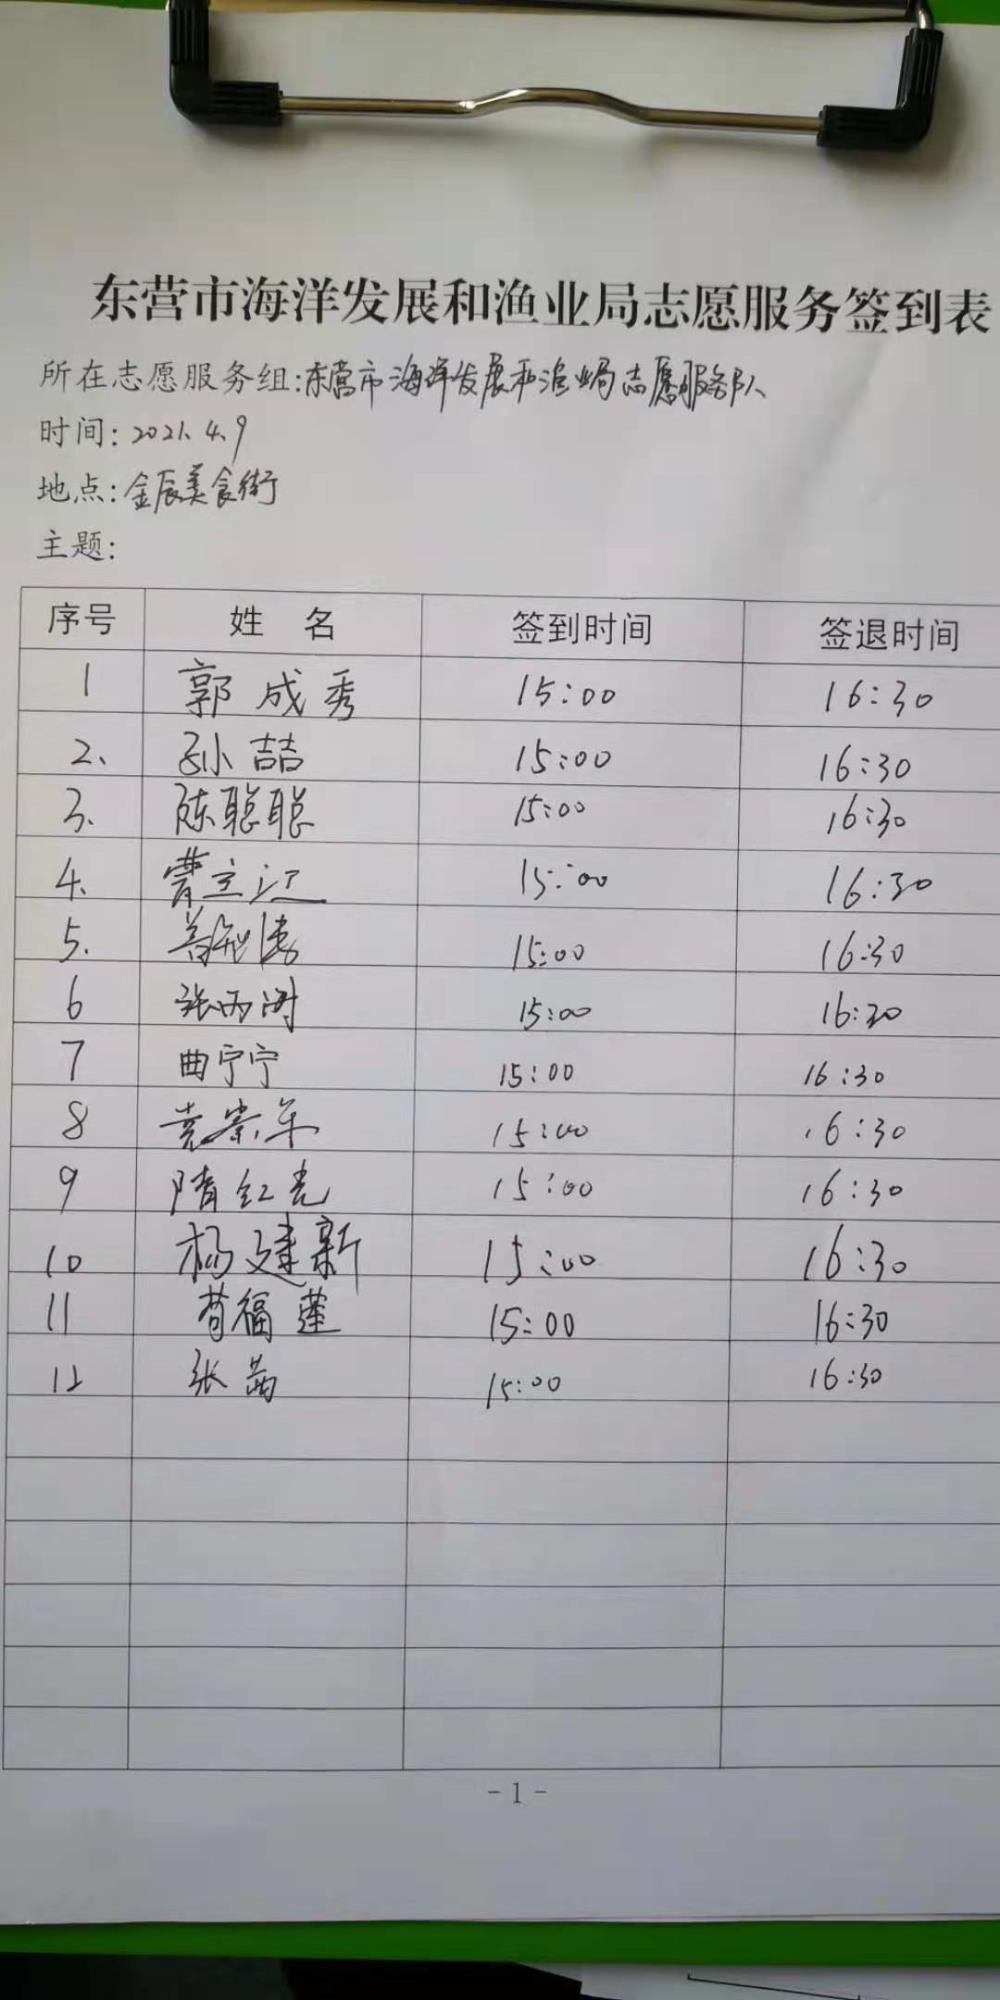 东营市海洋发展和渔业局志愿服务签到表
所在志愿服务组:东营市海洋发展和渔业局志愿服务队
时间:2021.4.9
地点:金辰美食街
主题:
序号 姓名 签到时间 签退时间
1 郭成秀 15:00 16:30
2、 孙喆 15:00 16:30
3、 陈聪聪 15:00 16:30
4、 曹立江 15:00 16:30
5、 15:00 16:30
6 张雨 15:00 16:30
7 曲宁宁 15:00 16:30
8 袁崇年 15:00 16:30
9 隋红光 15:00 16:30
10 杨建新 15:00 16:30
11 苟福莲 15:00 16:30
12 张茜 15:00 16:30
-1-